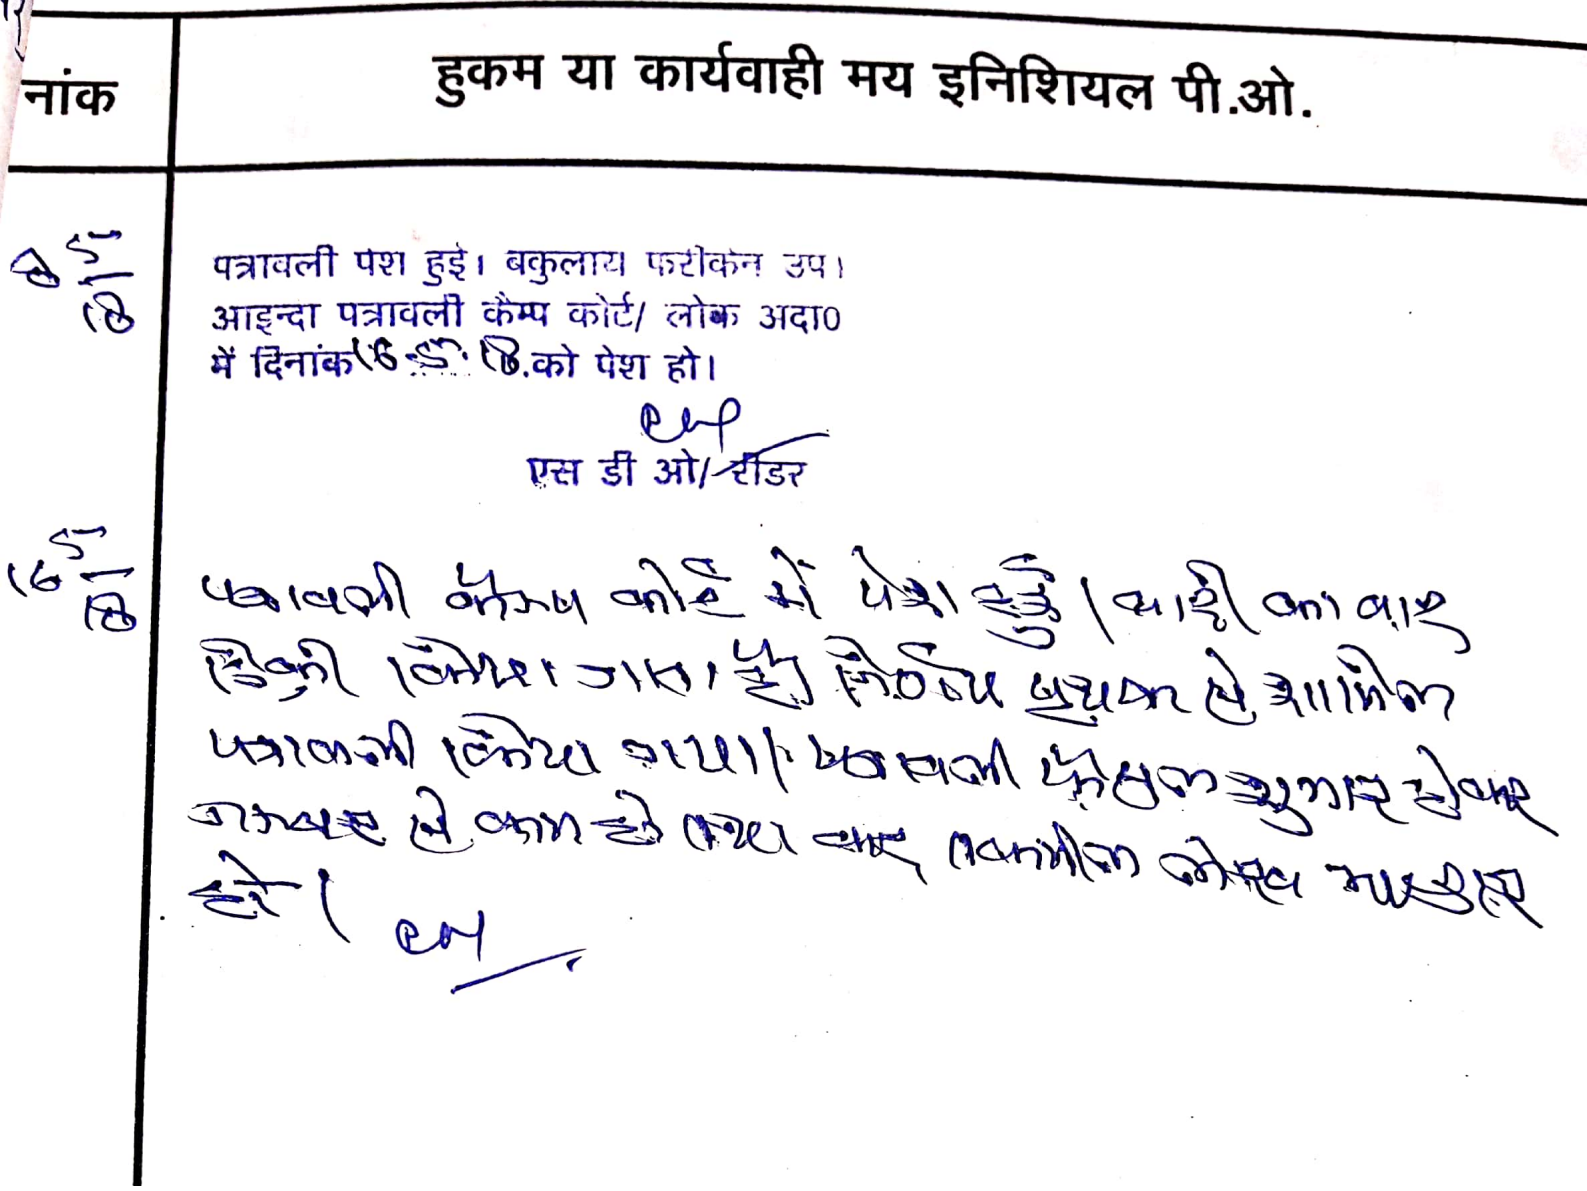 नांक
हुकम या कार्यवाही मय इनिशियल पी.ओ.
8 5/18
पत्रावली पेश हुई। बकुलाय फरीकेन उप।
आइन्दा पत्रावली कैम्प कोर्ट/ लोक अदा0
में दिनांक 16.5.18 को पेश हो।
एस डी ओ/ रीडर
16 5/18
पत्रावली कैम्प कोर्ट में पेश हुई। वादी का वाद
डिक्री किया गया है। निर्णय पृथक से शामिल
पत्रावली किया गया। पत्रावली फैसल शुमार होकर
नम्बर से कम हो तथा बाद तकमील दाखिल
हो।